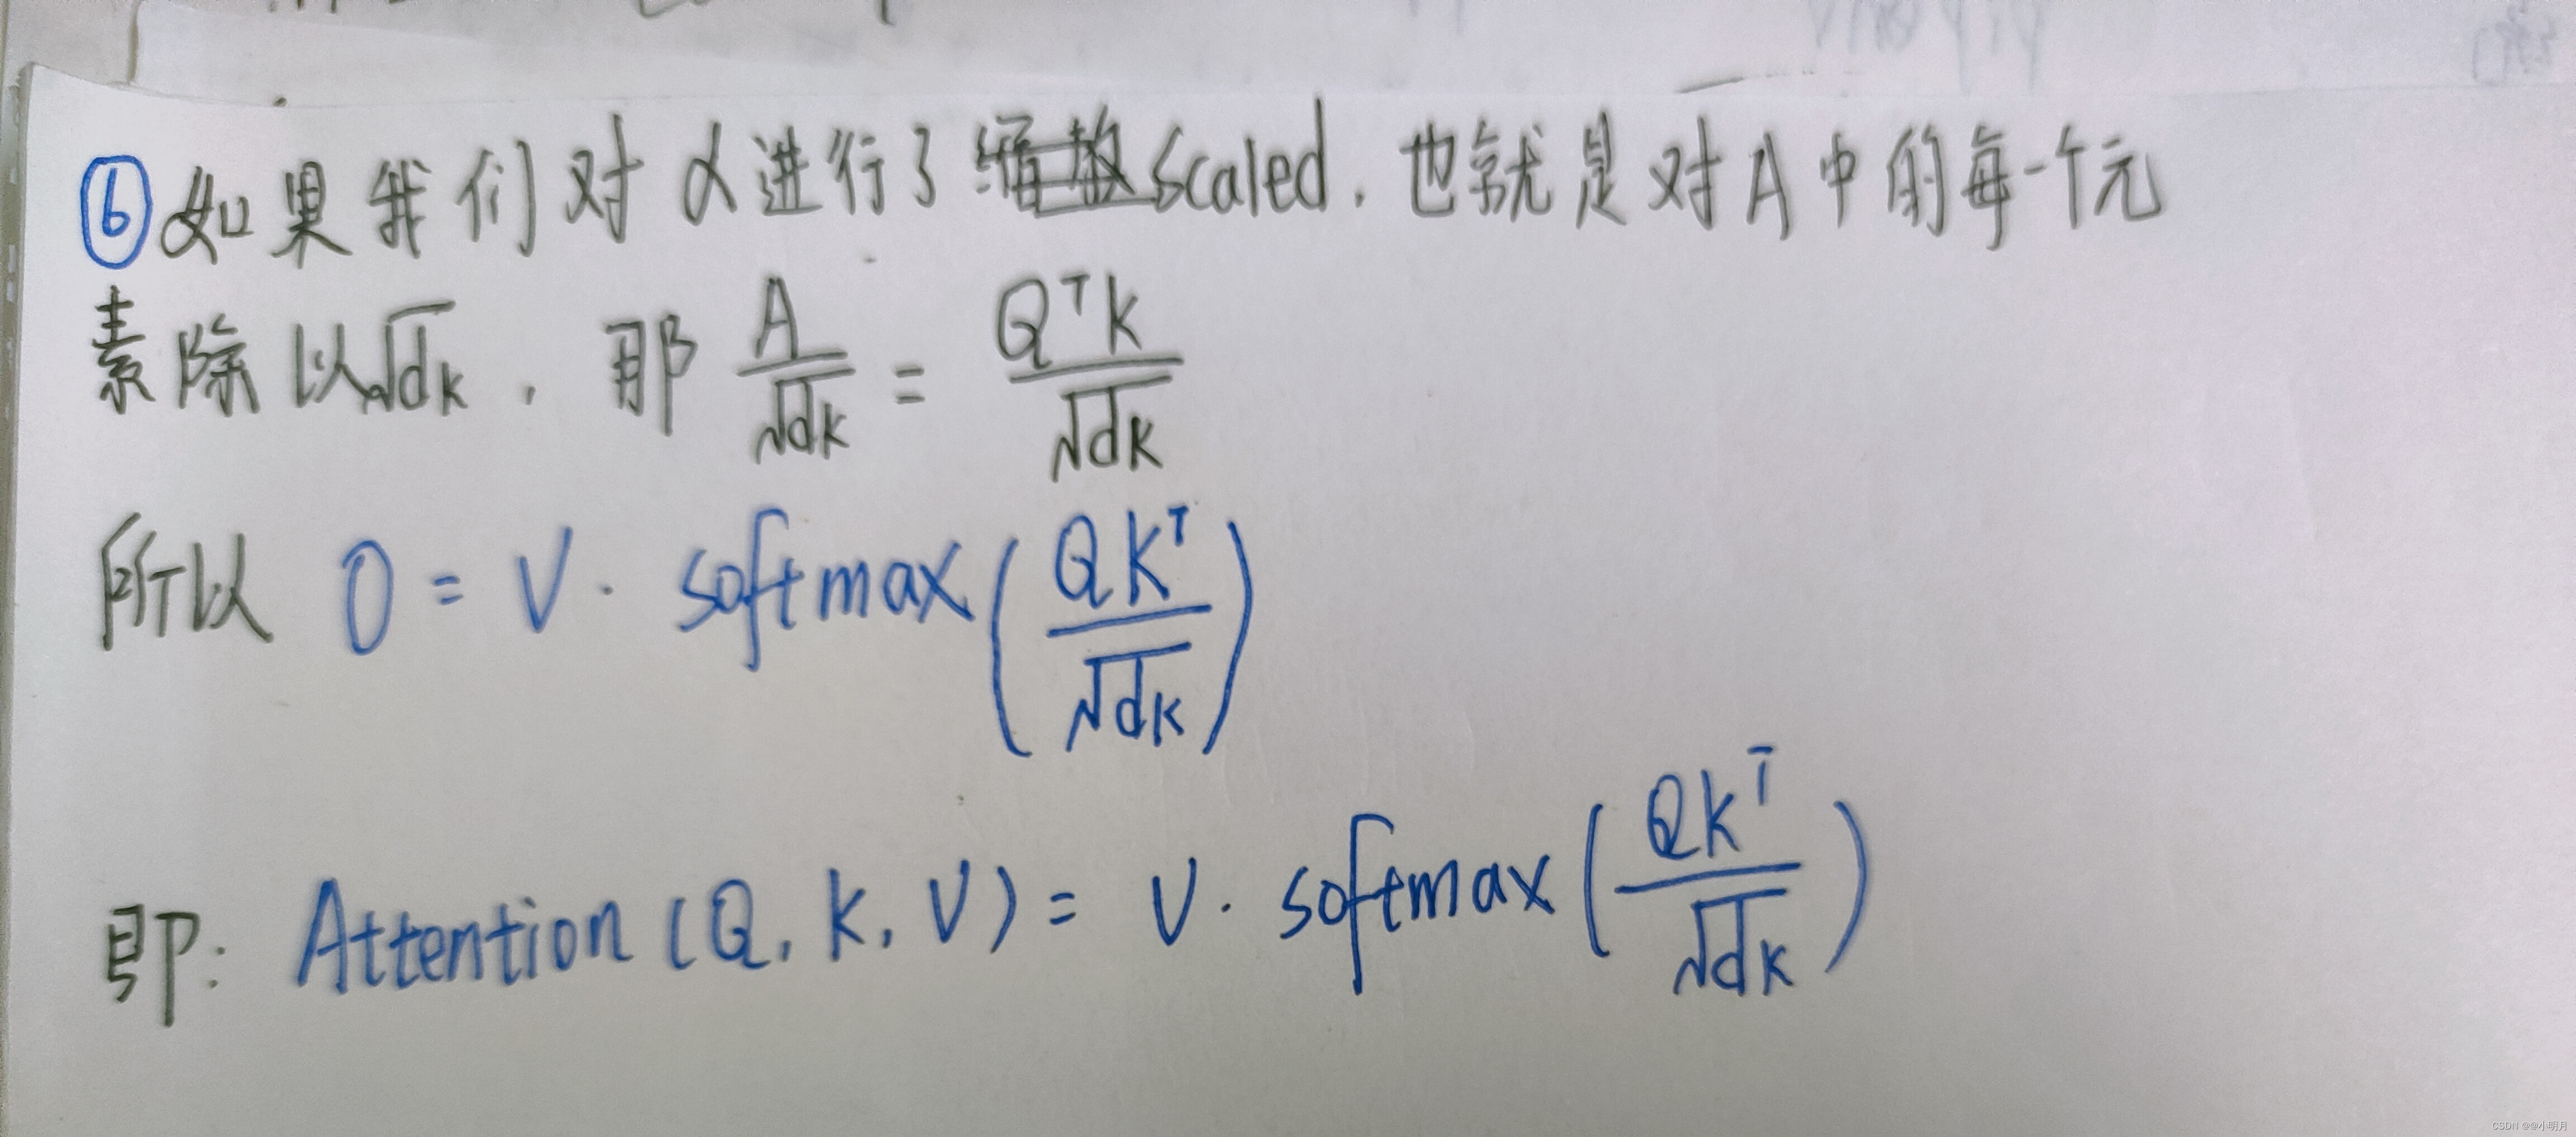 ⑥如果我们对α进行了scaled，也就是对A中的每一个元
素除以√dk，那 A/√dk = QᵀK/√dk
所以 O = V · softmax(QKᵀ/√dk)
即：Attention(Q, K, V) = V · softmax(QKᵀ/√dk)
CSDN @@小明月